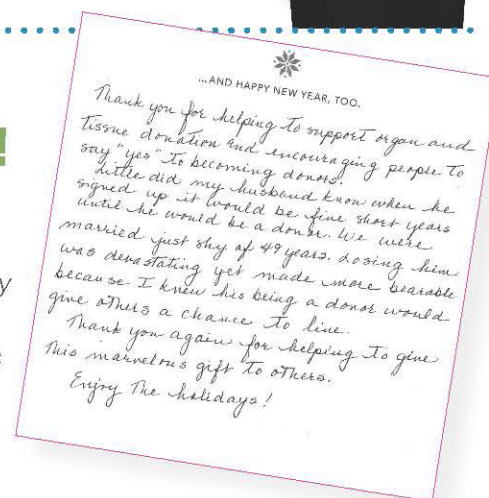 ...AND HAPPY NEW YEAR, TOO.
Thank you for helping to support organ and
tissue donation and encouraging people to
say "yes" to becoming donors.
Little did my husband know when he
signed up it would be five short years
until he would be a donor. We were
married just shy of 49 years. Losing him
was devastating yet made more bearable
because I knew his being a donor would
give others a chance to live.
Thank you again for helping to give
this marvelous gift to others.
Enjoy the holidays!
!
y